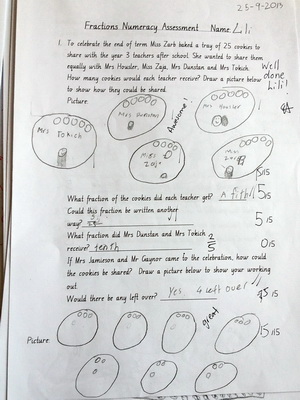 25-9-2013
Fractions Numeracy Assessment Name Lili
1. To celebrate the end of term Miss Zarb baked a tray of 25 cookies to
share with the year 3 teachers after school. She wanted to share them
equally with Mrs Housler, Miss Zaja, Mrs Dunstan and Mrs Tokich.
How many cookies would each teacher receive? Draw a picture below
to show how they could be shared.
Well
done
Lili!
Picture
Mrs Dunstan
Mrs Housler
Awesome!
Mrs Tokich
Miss
Miss
5/15
What fraction of the cookies did each teacher get? A fifth 5/5
Could this fraction be written another
way?
5/5
What fraction did Mrs Dunstan and Mrs Tokich
receive? tenth 2/5 0/5
If Mrs Jamieson and Mr Gaynor came to the celebration, how could
the cookies be shared? Draw a picture below to show your working
out
Would there be any left over? Yes 4 left over
great!
Picture